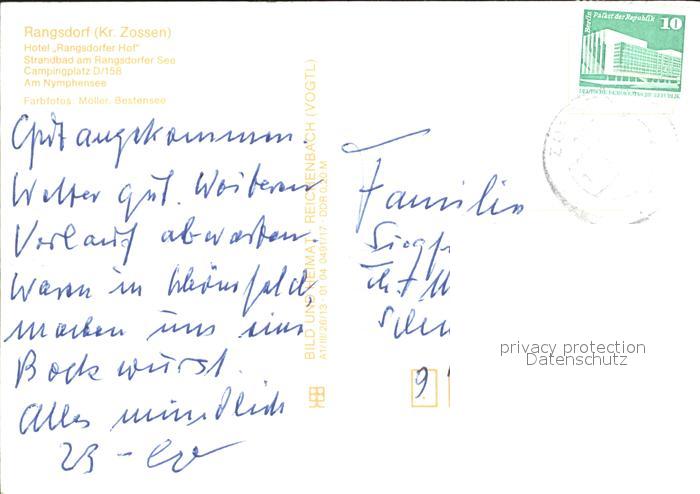 Rangsdorf (Kr. Zossen)
Hotel „Rangsdorfer Hof"
Strandbad am Rangsdorfer See
Campingplatz D/158
Am Nymphensee
Farbfotos: Möller, Bestensee
Gut angekommen.
Wetter gut. Weiteren
Verlauf abwarten.
Waren in Schönfeld,
machen uns eine
Bockwurst.
Alles mündlich
BILD UND HEIMAT REICHENBACH (VOGTL)
A1/III/26/13 · 01 04 0491/17 · DDR 0,20 M
Berlin Palast der Republik
10
DEUTSCHE DEMOKRATISCHE REPUBLIK
Familie
9
privacy protection
Datenschutz